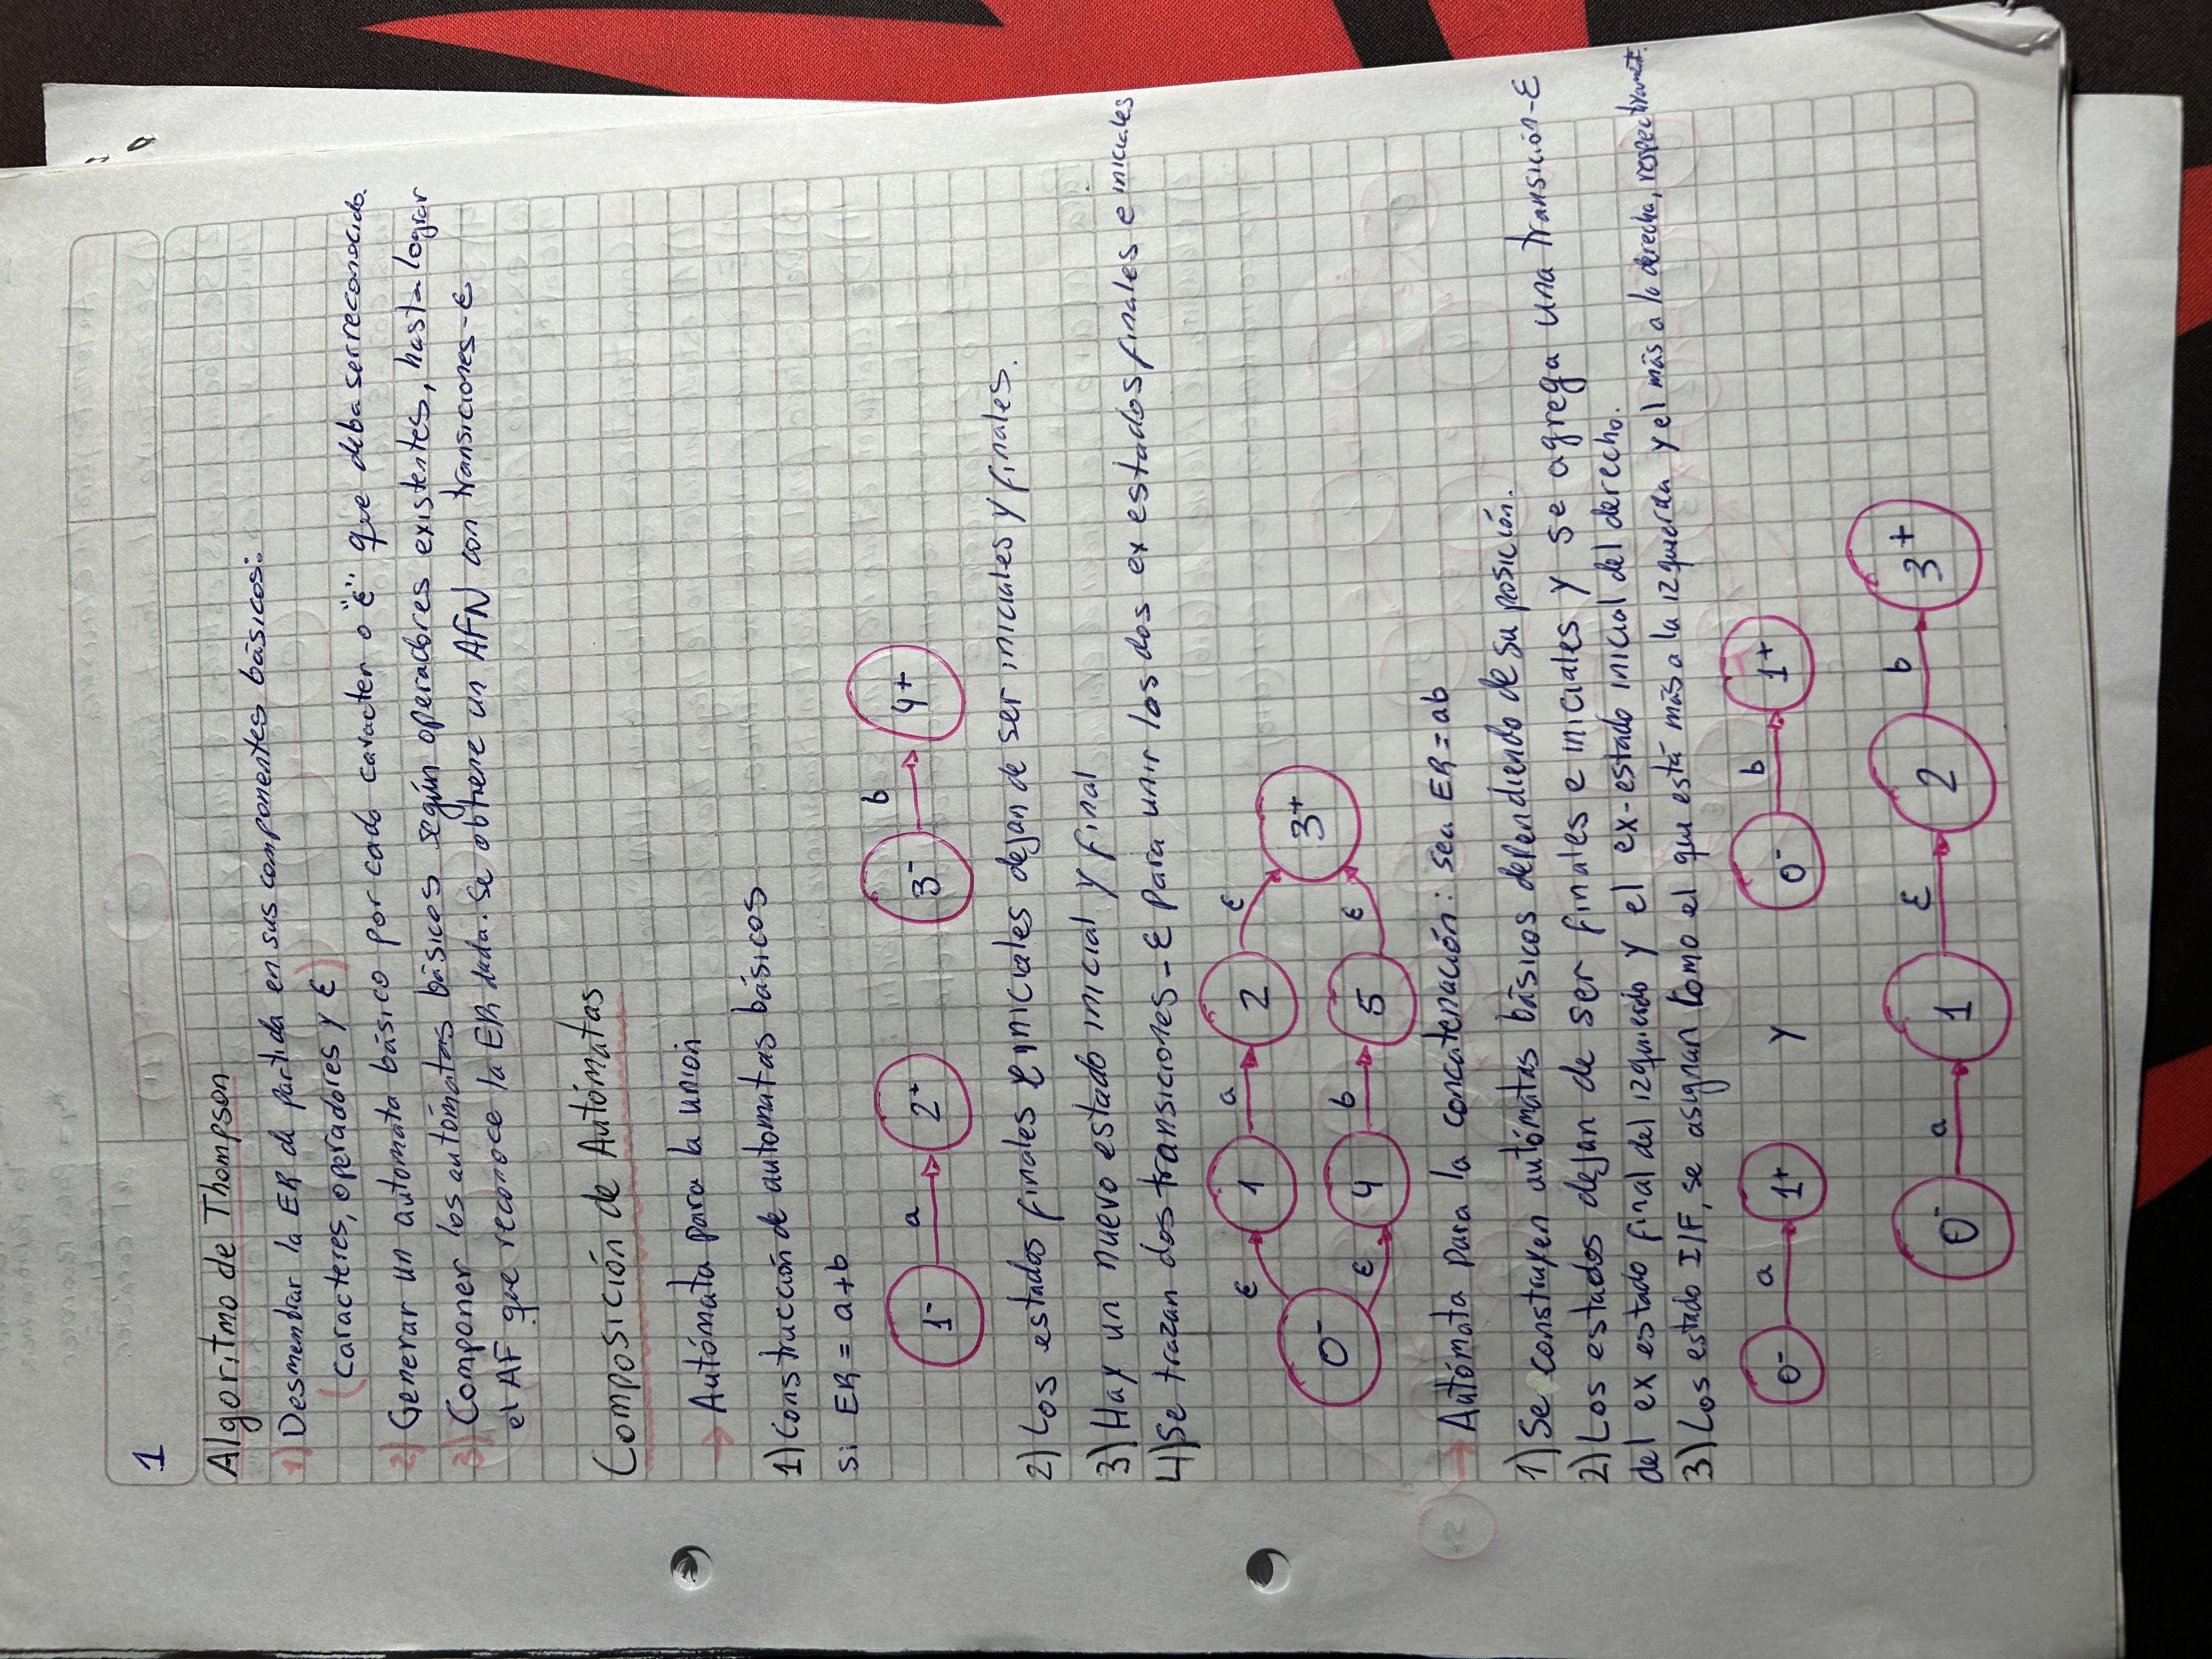 1
Algoritmo de Thompson
1) Desmembrar la ER de partida en sus componentes básicos:
(caracteres, operadores y ε)
2) Generar un automata básico por cada caracter o "ε" que deba ser reconocido.
3) Componer los autómatas básicos según operadores existentes, hasta lograr
el AF que reconoce la ER dada. Se obtiene un AFN con transiciones-ε
Composición de Autómatas
→ Autómata para la unión
1) Construcción de automatas básicos
Si ER = a+b
1- a 2+ 3- b 4+
2) Los estados finales e iniciales dejan de ser iniciales y finales.
3) Hay un nuevo estado inicial y final
4) Se trazan dos transiciones-ε para unir los dos ex estados finales e iniciales
ε 1 a 2 ε
0- 3+
ε 4 b 5 ε
→ Autómata para la concatenación: sea ER = ab
1) Se construyen autómatas básicos dependiendo de su posición.
2) Los estados dejan de ser finales e iniciales y se agrega una transición-ε
del ex estado final del izquierdo y el ex-estado inicial del derecho.
3) Los estado I/F, se asignan como el que está más a la izquierda y el más a la derecha, respectivament.
0- a 1+ y 0- b 1+
0- a 1 ε 2 b 3+